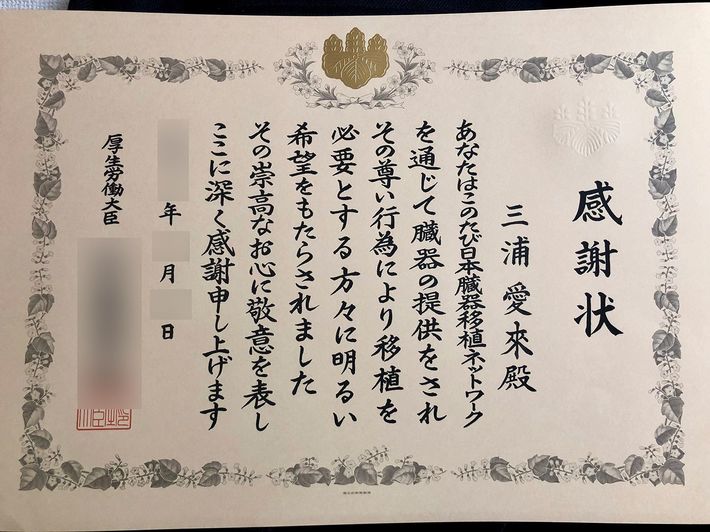 感謝状
三浦愛來殿
あなたはこのたび日本臓器移植ネットワーク
を通じて臓器の提供をされ
その尊い行為により移植を
必要とする方々に明るい
希望をもたらされました
その崇高なお心に敬意を表し
ここに深く感謝申し上げます
年 月 日
厚生労働大臣